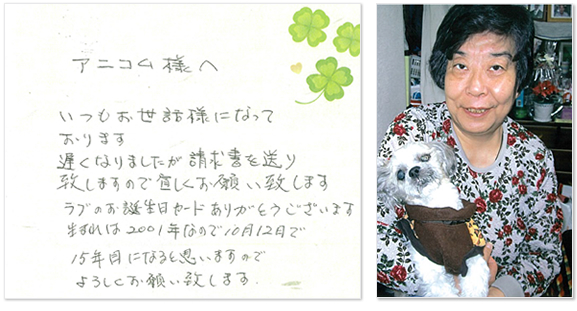 アニコム様へ
いつもお世話様になって
おります
遅くなりましたが請求書を送り
致しますので宜しくお願い致します
ラブのお誕生日カードありがとうございます
生まれは2001年なので10月12日で
15年目になると思いますので
よろしくお願い致します